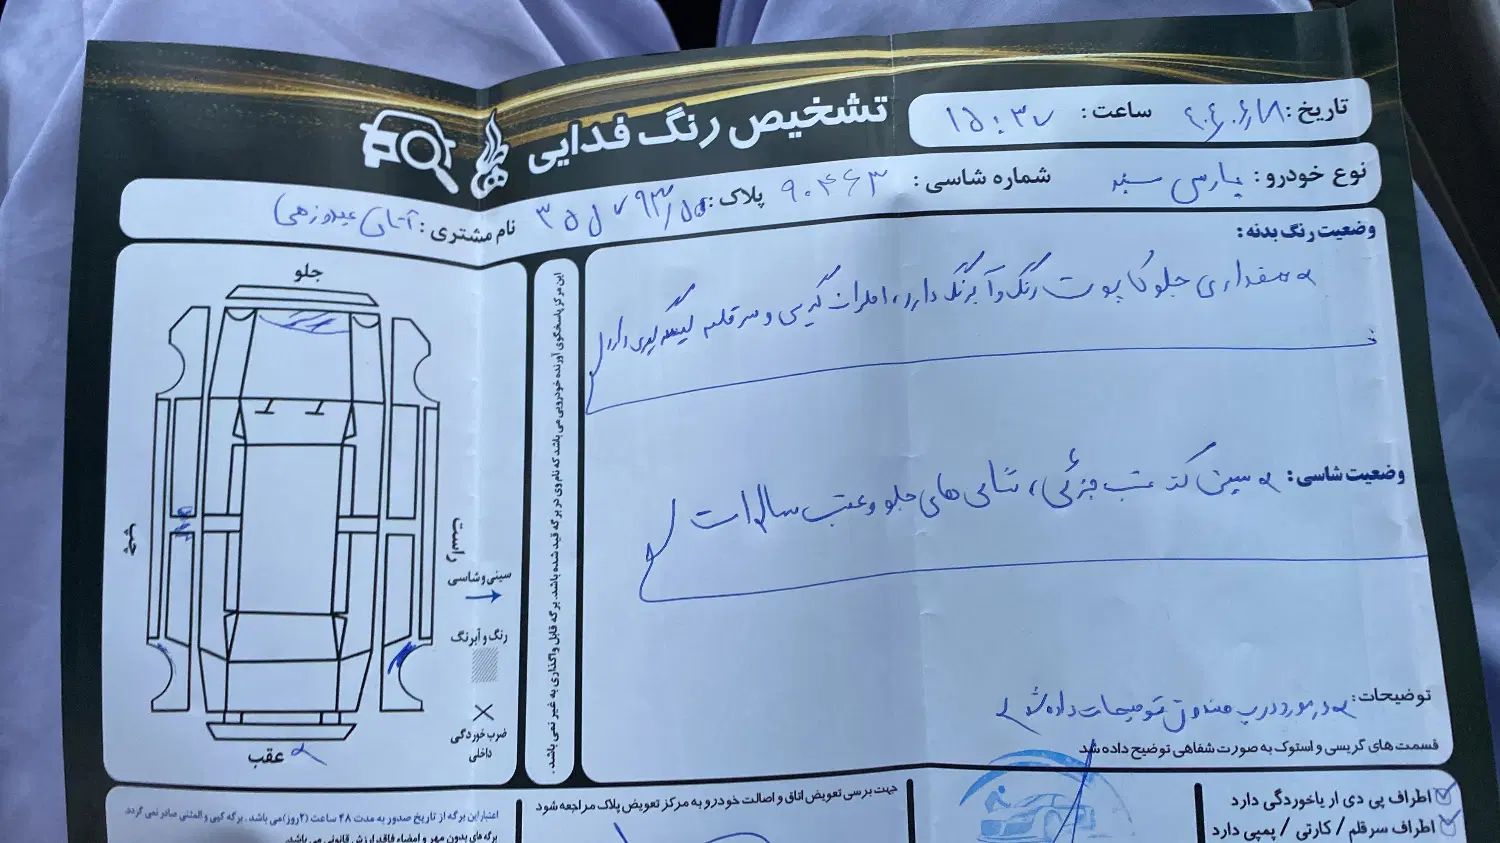 تشخیص رنگ فدایی
تاریخ: ساعت: ۱۵:۳۷
نوع خودرو: پارس سفید شماره شاسی: ۹۰۴۶۳ پلاک: نام مشتری: آقای
وضعیت رنگ بدنه:
مقداری جلو کاپوت رنگ و آبرنگ دارد، اطراف گریسی و سر قلم لیسه گیری دارد
وضعیت شاسی: سینی کف عقب جزئی، شاسی های جلو و عقب سالم است
توضیحات: در مورد درب صندوق توضیحات داده شد
قسمت های گریسی و استوک به صورت شفاهی توضیح داده شد
اطراف پی دی ار یاخوردگی دارد
اطراف سرقلم / کارتی / پمپی دارد
جلو
راست
عقب
سینی و شاسی
رنگ و آبرنگ
ضرب خوردگی
داخلی
این مرکز پاسخگوی آورنده خودرویی می باشد که نام وی در برگه قید شده باشد. برگه قابل واگذاری به غیر نمی باشد.
جهت برسی تعویض اتاق و اصالت خودرو به مرکز تعویض پلاک مراجعه شود
اعتبار این برگه از تاریخ صدور به مدت ۴۸ ساعت (۲روز) می باشد. برگه کپی و المثنی صادر نمی گردد
برگه های بدون مهر و امضاء فاقد ارزش قانونی می باشد